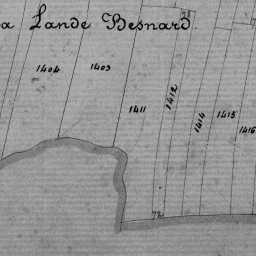 a Lande Besnard
1404
1403
1411
1412
1414
1415
1416